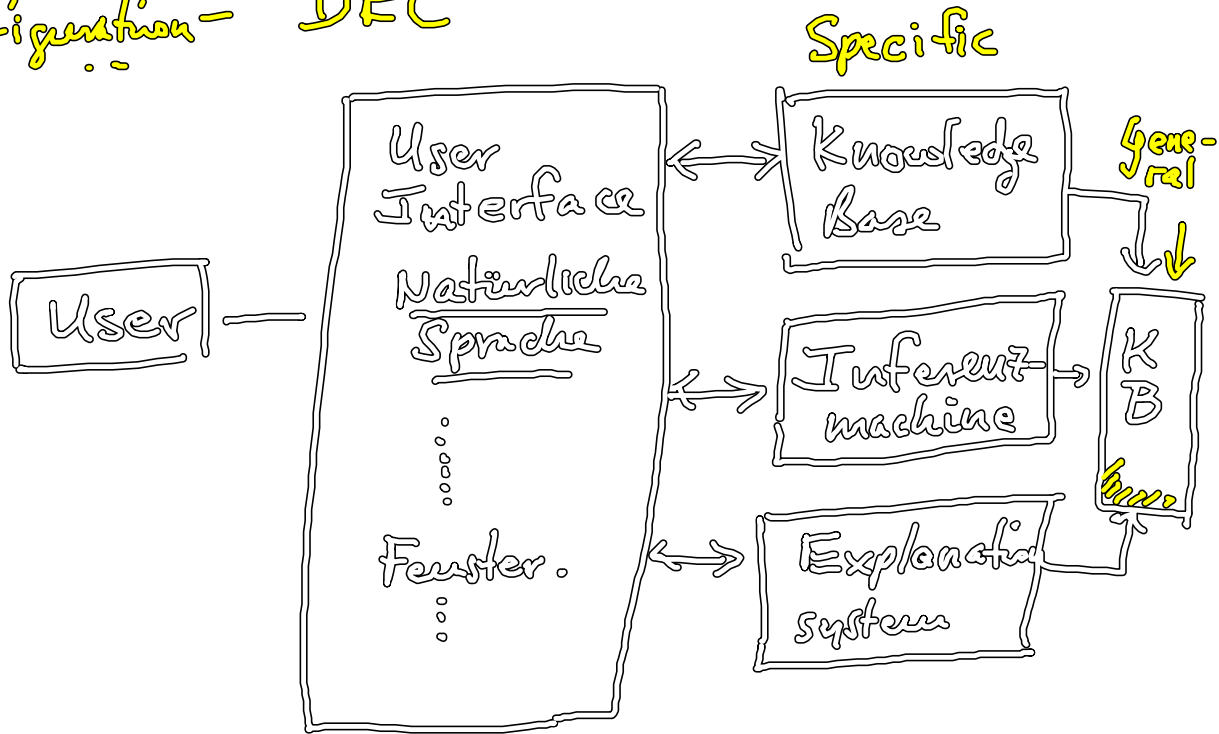 DEC
Specific
User
Interface
Natürliche
Sprache
Fenster.
User
Knowledge
Base
gene-
ral
Inferenz-
machine
K
B
Explanation
system